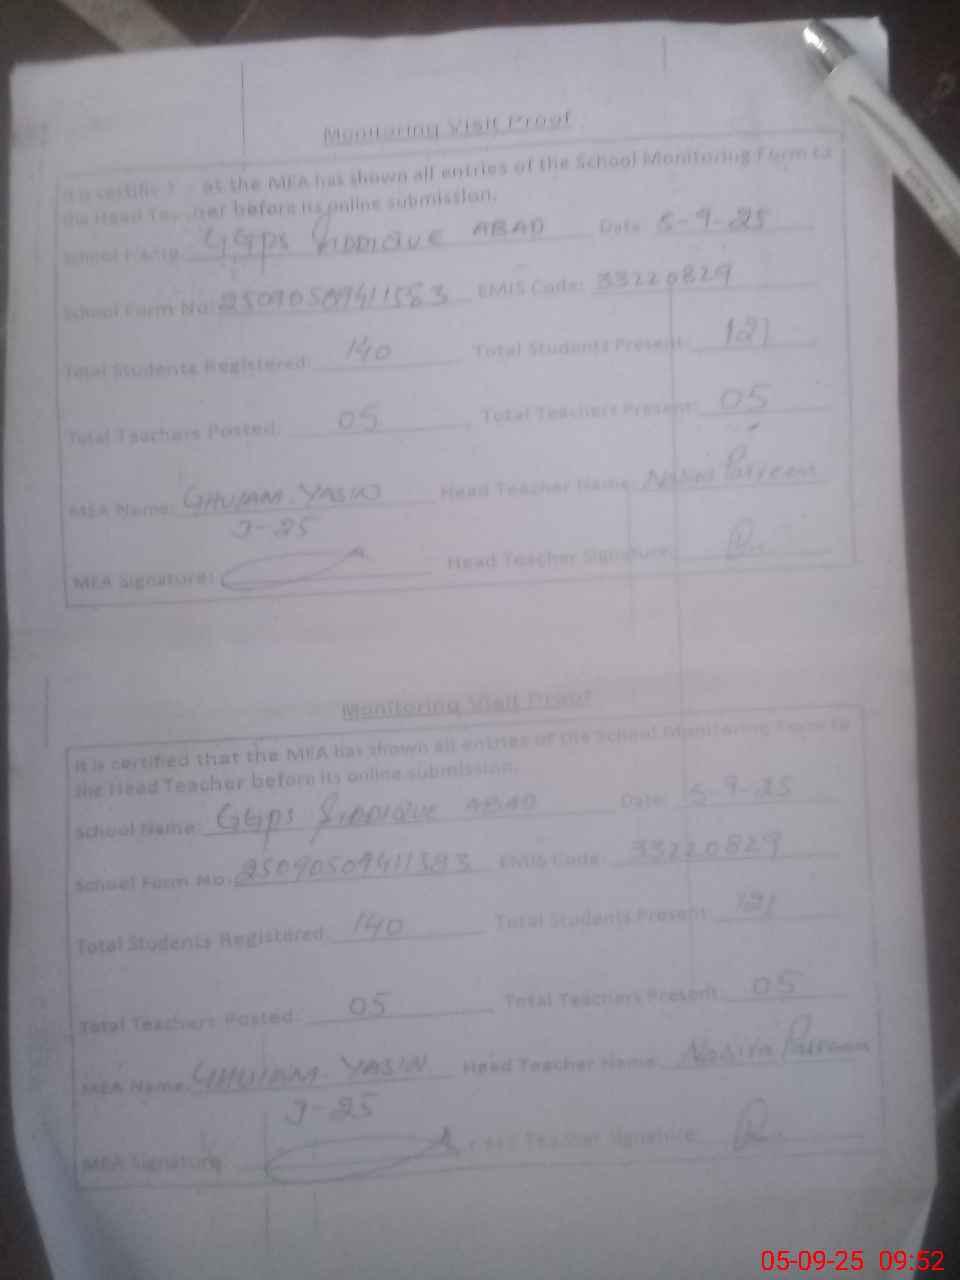 Monitoring Visit Proof
It is certified as the MEA has shown all entries of the School Monitoring Form to
the Head Teacher before its online submission.
School Name: GGPS SIDDIQUE ABAD Date: 5-9-25
School Form No: 25090509411583 EMIS Code: 33220829
Total Students Registered: 140 Total Students Present: 121
Total Teachers Posted: 05 Total Teachers Present: 05
MEA Name: GHULAM YASIN Head Teacher Name: Parveen
J-25
MEA Signature: Head Teacher Signature:
Monitoring Visit Proof
It is certified that the MEA has shown all entries of the School Monitoring Form to
the Head Teacher before its online submission.
School Name: GGPS SIDDIQUE ABAD Date: 5-9-25
School Form No: 25090509411583 EMIS Code: 33220829
Total Students Registered: 140 Total Students Present: 121
Total Teachers Posted: 05 Total Teachers Present: 05
MEA Name: GHULAM YASIN Head Teacher Name: Parveen
J-25
MEA Signature Head Teacher Signature:
05-09-25 09:52